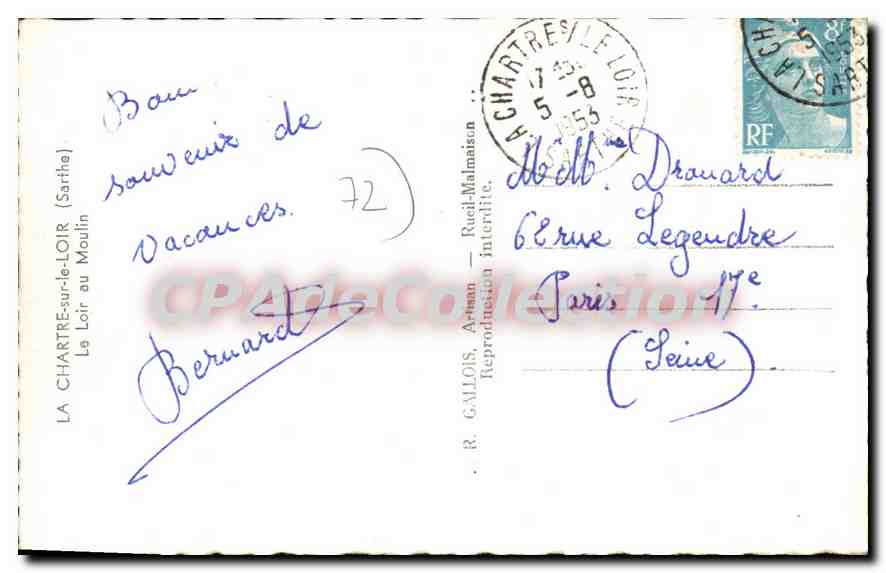 LA CHARTRE-sur-le-LOIR (Sarthe)
Le Loir au Moulin
Bon
souvenir de
vacances.
72
Bernard
R. GALLOIS, Artisan — Rueil-Malmaison
Reproduction interdite.
LA CHARTRE S/ LE LOIR
17
5 -8
1953
SARTHE
8F
RF
LA CHA
5
1953
SARTH
Drouard
62 rue Legendre
Paris 17e
(Seine)
CPAdeCollection